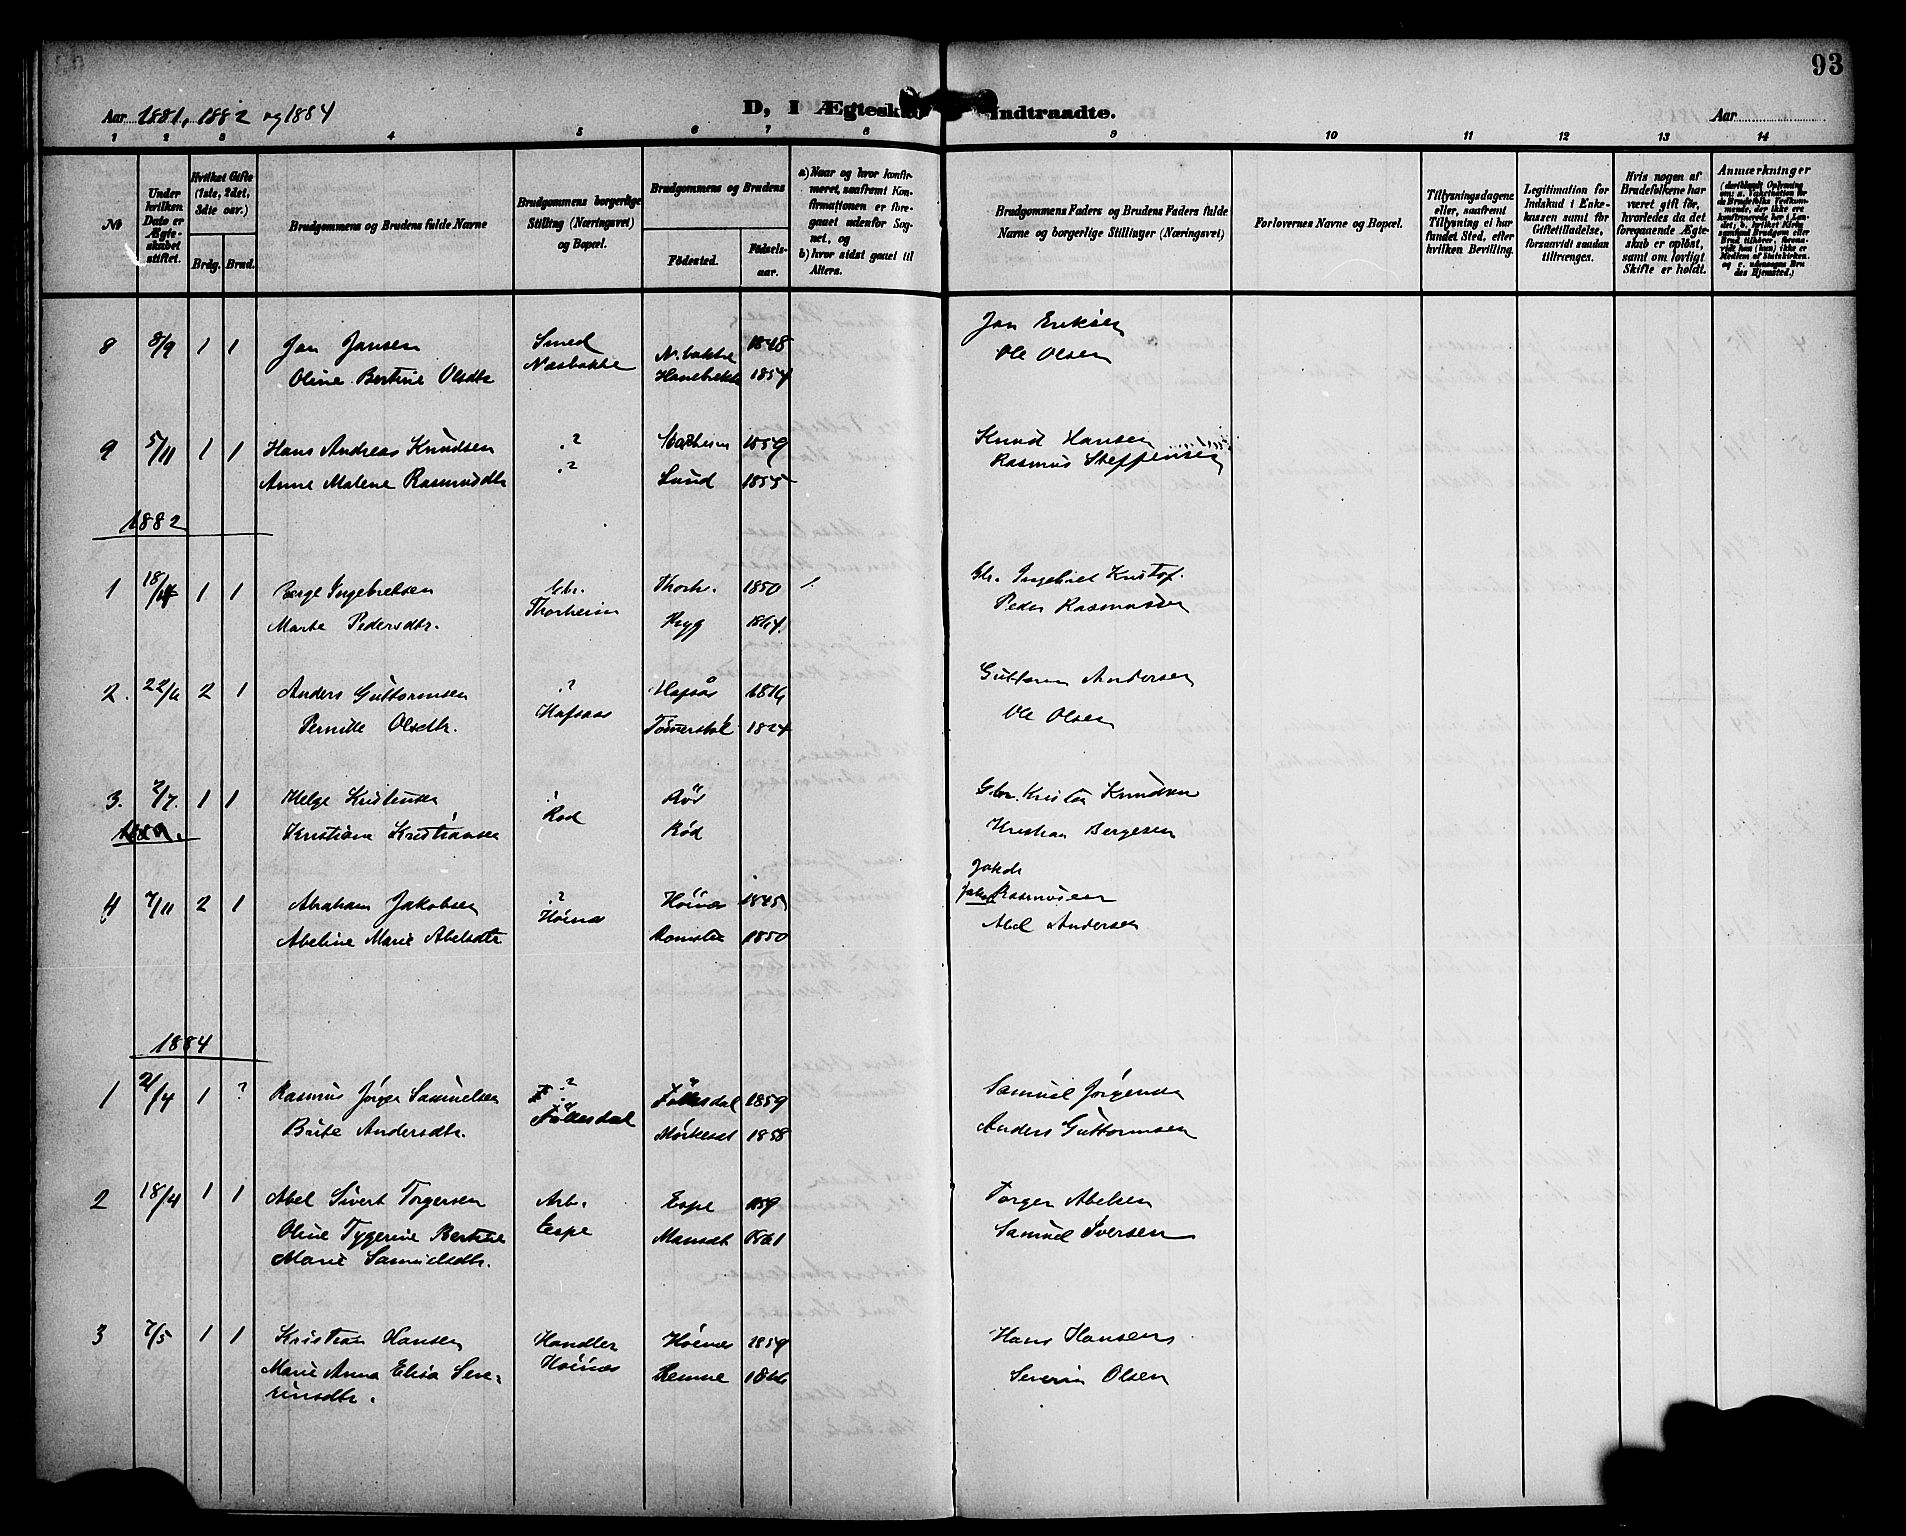 93
Aar 1881, 1882 og 1884
D, I Ægtesk Indtraadte.
Aar
1 2 3 4 5 6 7 8 9 10 11 12 13 14
№
Under hvilken Dato er Ægteskabet stiftet.
Hvilket Gifte (1ste, 2det, 3die osv.)
Brdg. Brud.
Brudgommens og Brudens fulde Navne
Brudgommens borgerlige Stilling (Næringsvei) og Bopæl.
Brudgommens og Brudens
Fødested. Fødselsaar.
a) Naar og hvor konfirmeret, saafremt Konfirmationen er foregaaet udenfor Sognet, og
b) hvor sidst gaaet til Alters.
Brudgommens Faders og Brudens Faders fulde Navne og borgerlige Stillinger (Næringsvei)
Forlovernes Navne og Bopæl.
Tillysningsdagene eller, saafremt Tillysning ei har fundet Sted, efter hvilken Bevilling.
Legitimation for Indskud i Enkekassen samt for Giftetilladelse, forsaavidt saadan tiltrænges.
Hvis nogen af Brudefolkene har været gift før, hvorledes da det foregaaende Ægteskab er opløst, samt om lovligt Skifte er holdt.
Anmerkninger
8 8/9 1 1 Jan Jansen Smed N.bakke 1848 Jan Eriksen
Oline Bertine Olsdtr Næsbakke Hanebrekke 1854 Ole Olsen
9 5/11 1 1 Hans Andreas Knudsen ? 1859 Knud Hansen
Anne Malene Rasmusdtr ? Lund 1855 Rasmus Steffensen
1882
1 18/4 1 1 Børge Ingebretsen Gbr. Thorh. 1850 Gbr. Ingebret Kristof.
Marte Pedersdtr. Thorheim Ryg 1864. Peder Rasmussen
2. 22/6 2 1 Anders Guttormsen ? Hafsås 1816 Guttorm Andersen
Pernille Olsdtr. Hafsaas 1824 Ole Olsen
3. 2/7. 1 1 Helge Kristensen ? Rød Gbr. Krister Knudsen
Kristiane Kristiansen Rød Rød Kristian Bergesen
4 7/11 2 1 Abraham Jakobsen ? Höinæs 1845 Jakob Rasmussen
Abeline Marie Abelsdtr Höinæs 1850 Abel Andersen
1884
1 2/4 1 ? Rasmus Jörgen Samuelsen ? Fölkesdal 1859 Samuel Jörgensen
Brite Andersdtr. Fölkesdal Mörkeset 1858 Anders Guttormsen
2 18/4 1 1 Abel Sivert Torgersen Arb. Espe 1859 Torger Abelsen
Oline Tygerine Bertine Espe 1861 Samuel Iversen
Marie Samuelsdtr.
3 7/5 1 1 Kristian Hansen Handler Höinæs 1859 Hans Hansen
Marie Anna Elisa Seve- Höinæs Lemne 1866 Severin Olsen
rinsdtr.